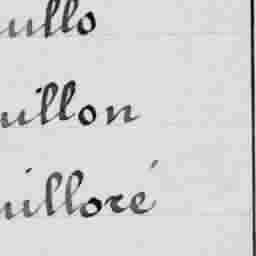 ullo
uillon
uilloré